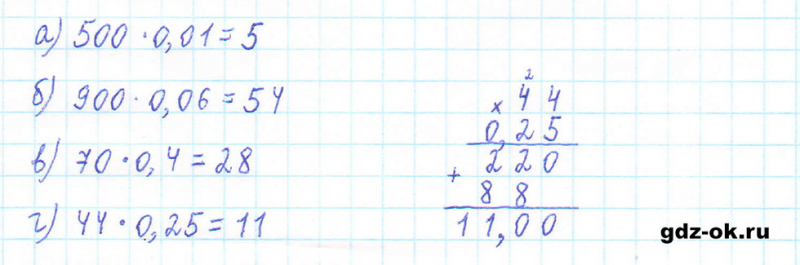 а) 500 · 0,01 = 5
б) 900 · 0,06 = 54
в) 70 · 0,4 = 28
г) 44 · 0,25 = 11
2
× 44
0,25
220
+ 88
11,00
gdz-ok.ru